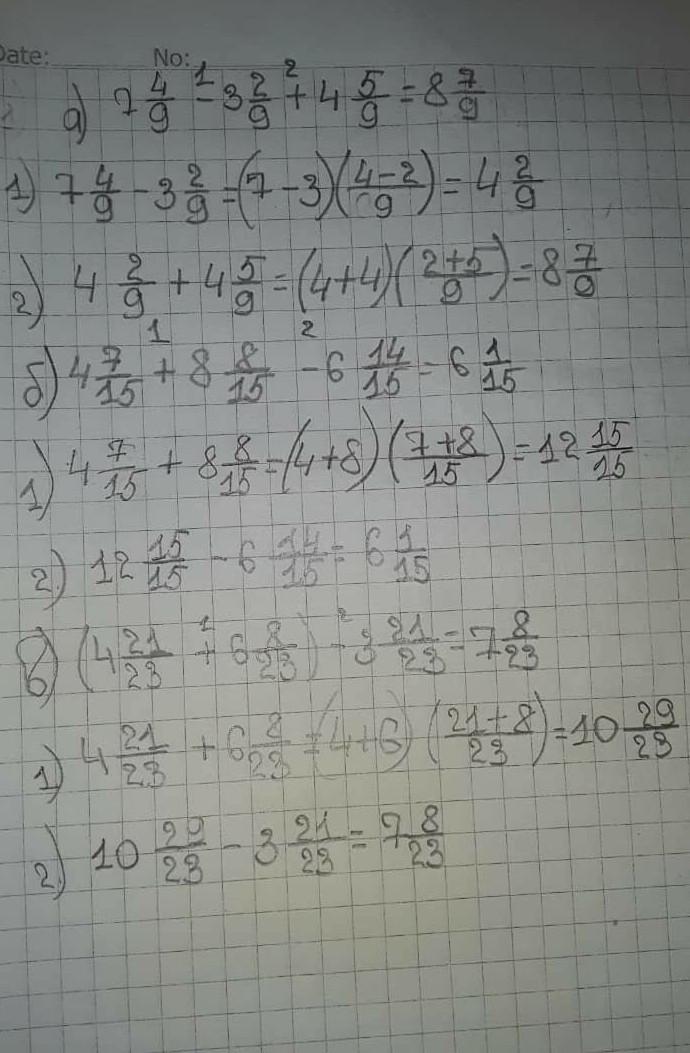 Date: No:
а) 7 4/9 -¹ 3 2/9 +² 4 5/9 = 8 7/9
1) 7 4/9 - 3 2/9 = (7 - 3)(4-2/9) = 4 2/9
2) 4 2/9 + 4 5/9 = (4+4)(2+5/9) = 8 7/9
б) 4 7/15 +¹ 8 8/15 -² 6 14/15 = 6 1/15
1) 4 7/15 + 8 8/15 = (4+8)(7+8/15) = 12 15/15
2) 12 15/15 - 6 14/15 = 6 1/15
в) (4 21/23 +¹ 6 8/23) -² 3 21/23 = 7 8/23
1) 4 21/23 + 6 8/23 = (4+6)(21+8/23) = 10 29/23
2) 10 29/23 - 3 21/23 = 7 8/23